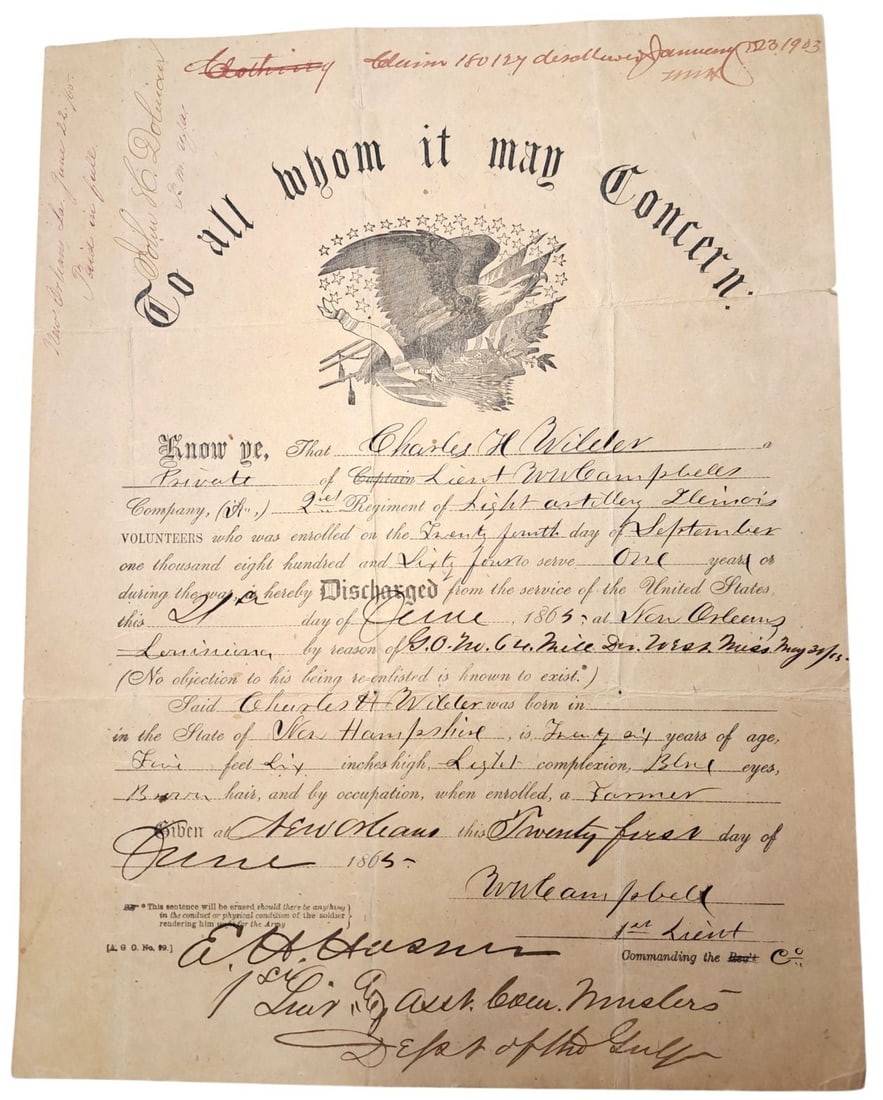 Clothing Claim 180127 disallowed January 23 1903
New Orleans La. June 22 /65.
Paid in full.
John H. Dolman
P.M. U.S.A.
To all whom it may Concern:
Know ye, That Charles H Wilder a
Private of Captain Lieut W W Campbells
Company, (A,) 2nd Regiment of Light artillery Illinois
VOLUNTEERS who was enrolled on the Twenty fourth day of September
one thousand eight hundred and Sixty four to serve One years or
during the war, is hereby Discharged from the service of the United States,
this 21st day of June, 1865, at New Orleans
Louisiana by reason of G.O. No. 64. Mill Div. West. Miss. May 30/65.
(No objection to his being re-enlisted is known to exist.*)
Said Charles H Wilder was born in
in the State of New Hampshire, is Twenty six years of age,
Five feet Six inches high, Light complexion, Blue eyes,
Brown hair, and by occupation, when enrolled, a Farmer
Given at New Orleans this Twenty first day of
June 1865-
W W Campbell
* This sentence will be erased should there be anything
in the conduct or physical condition of the soldier
rendering him unfit for the Army
1st Lieut
[A. G. O. No. 99.]
Commanding the Reg't Co
E. H.
1st Lieut, & Asst. Com. Musters
Dept of the Gulf